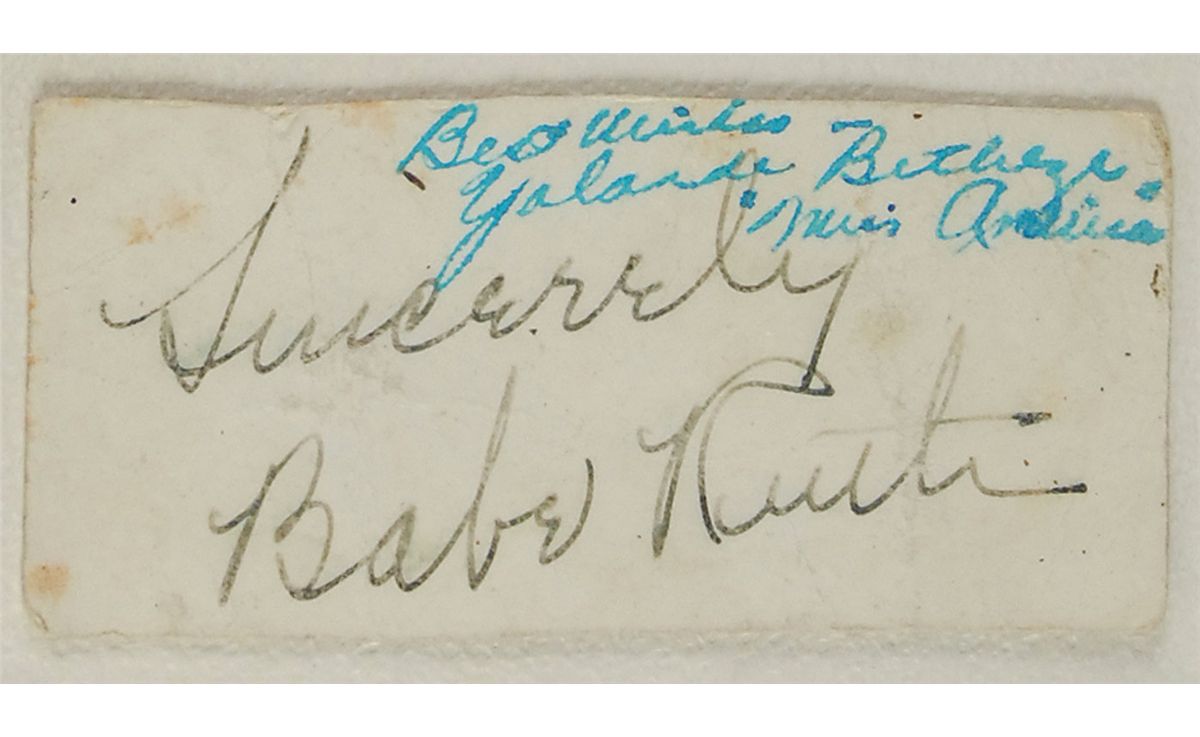 Best Wishes -
Yolande Betbeze
"Miss America"
Sincerely
Babe Ruth